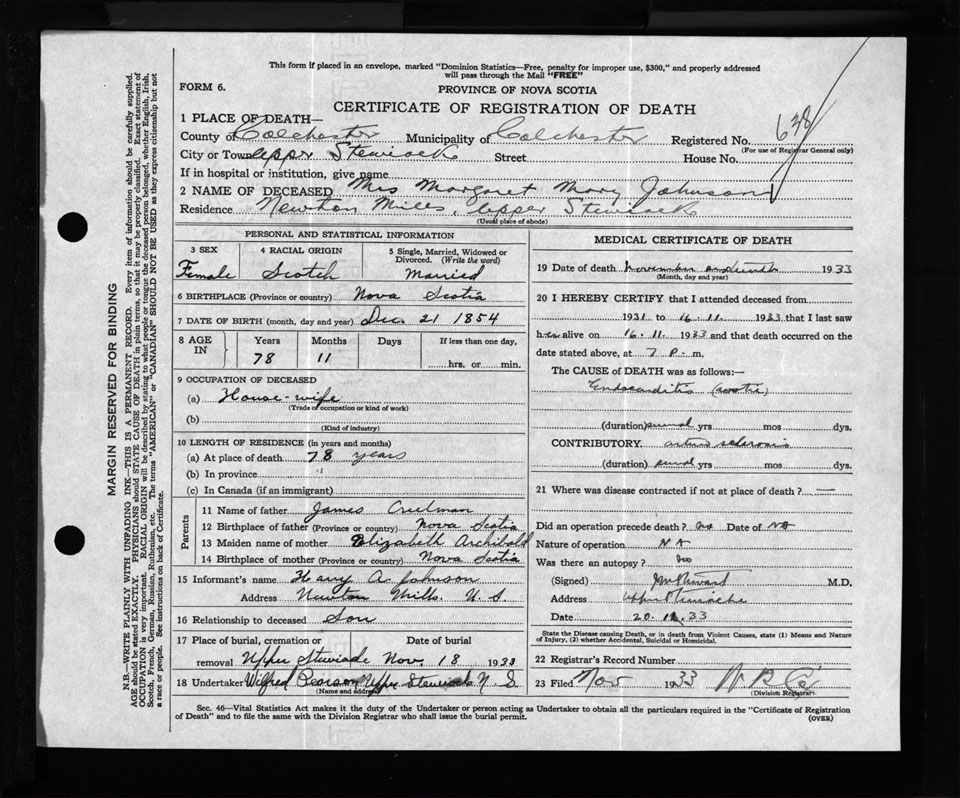 This form if placed in an envelope, marked "Dominion Statistics—Free, penalty for improper use, $300," and properly addressed
will pass through the Mail "FREE"
FORM 6.
PROVINCE OF NOVA SCOTIA
CERTIFICATE OF REGISTRATION OF DEATH
1 PLACE OF DEATH—
County of Colchester Municipality of Colchester Registered No. 638
(For use of Registrar General only)
City or Town Upper Stewiacke Street House No.
If in hospital or institution, give name
2 NAME OF DECEASED Mrs Margaret Mary Johnson
Residence Newton Mills, Upper Stewiacke
(Usual place of abode)
PERSONAL AND STATISTICAL INFORMATION
3 SEX 4 RACIAL ORIGIN 5 Single, Married, Widowed or Divorced. (Write the word)
Female Scotch Married
6 BIRTHPLACE (Province or country) Nova Scotia
7 DATE OF BIRTH (month, day and year) Dec 21 1854
8 AGE IN Years Months Days If less than one day,
78 11 hrs. or min.
9 OCCUPATION OF DECEASED
(a) House-wife
(Trade or occupation or kind of work)
(b)
(Kind of industry)
10 LENGTH OF RESIDENCE (in years and months)
(a) At place of death 78 years
(b) In province "
(c) In Canada (if an immigrant)
Parents
11 Name of father James
12 Birthplace of father (Province or country) Nova Scotia
13 Maiden name of mother Elizabeth Archibald
14 Birthplace of mother (Province or country) Nova Scotia
15 Informant's name Harry A. Johnson
Address Newton Mills. N. S.
16 Relationship to deceased Son
17 Place of burial, cremation or removal Date of burial
Upper Stewiacke Nov. 18 1933
18 Undertaker Wilfred Pearson Upper Stewiacke N. S.
(Name and address)
MEDICAL CERTIFICATE OF DEATH
19 Date of death November 1933
(Month, day and year)
20 I HEREBY CERTIFY that I attended deceased from
1931 to 16-11- 1933 that I last saw
her alive on 16-11- 1933 and that death occurred on the
date stated above, at 7 P. m.
The CAUSE of DEATH was as follows:—
Endocarditis
(duration) several yrs mos dys.
CONTRIBUTORY. arterio sclerosis
(duration) several yrs mos dys.
21 Where was disease contracted if not at place of death? —
Did an operation precede death? no Date of NA
Nature of operation NA
Was there an autopsy? no
(Signed) M.D.
Address Upper Stewiacke
Date 20.11.33
State the Disease causing Death, or in death from Violent Causes, state (1) Means and Nature
of Injury, (2) whether Accidental, Suicidal or Homicidal.
22 Registrar's Record Number
23 Filed Nov 1933
(Division Registrar)
Sec. 46—Vital Statistics Act makes it the duty of the Undertaker or person acting as Undertaker to obtain all the particulars required in the "Certificate of Registration
of Death" and to file the same with the Division Registrar who shall issue the burial permit.
(OVER)
MARGIN RESERVED FOR BINDING
N.B.—WRITE PLAINLY WITH UNFADING INK—THIS IS A PERMANENT RECORD. Every item of information should be carefully supplied.
AGE should be stated EXACTLY. PHYSICIANS should STATE CAUSE OF DEATH in plain terms, so that it may be properly classified. Exact statement of
OCCUPATION is very important. RACIAL ORIGIN will be described by stating to what people or tongue the deceased person belonged, whether English, Irish,
Scotch, French, German, Russian, Ruthenian, etc. The terms "AMERICAN" or "CANADIAN" SHOULD NOT BE USED as they express citizenship but not
a race or people. See instructions on back of Certificate.